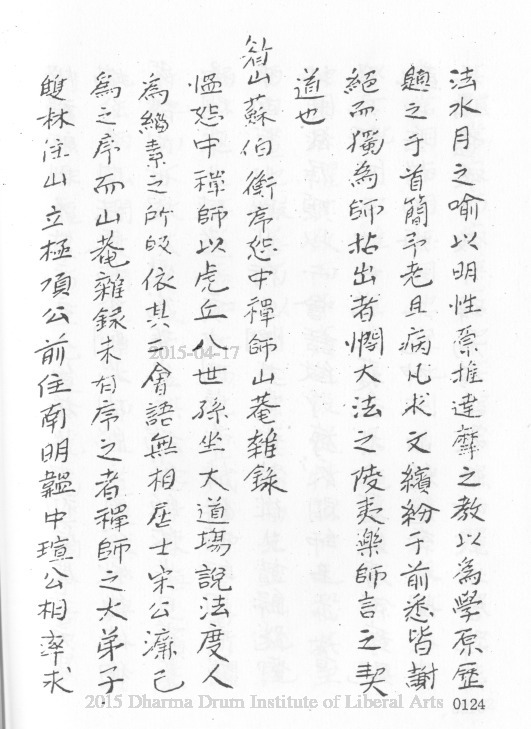 法水月之喻以明性宗推達摩之教以為學原歷
題之于首簡予老且病凡求文繽紛于前悉皆謝
絕而獨為師拈出者憫大法之陵夷樂師言之契
道也
眉山蘇伯衡序恕中禪師山菴雜錄
慍恕中禪師以虎丘八世孫坐大道場說法度人
為緇素之所皈依其三會語無相居士宋公濂已
為之序而山菴雜錄未有序之者禪師之大弟子
雙林住山立極項公前住南明韞中瑄公相率求
2015-04-17
2015 Dharma Drum Institute of Liberal Arts
0124